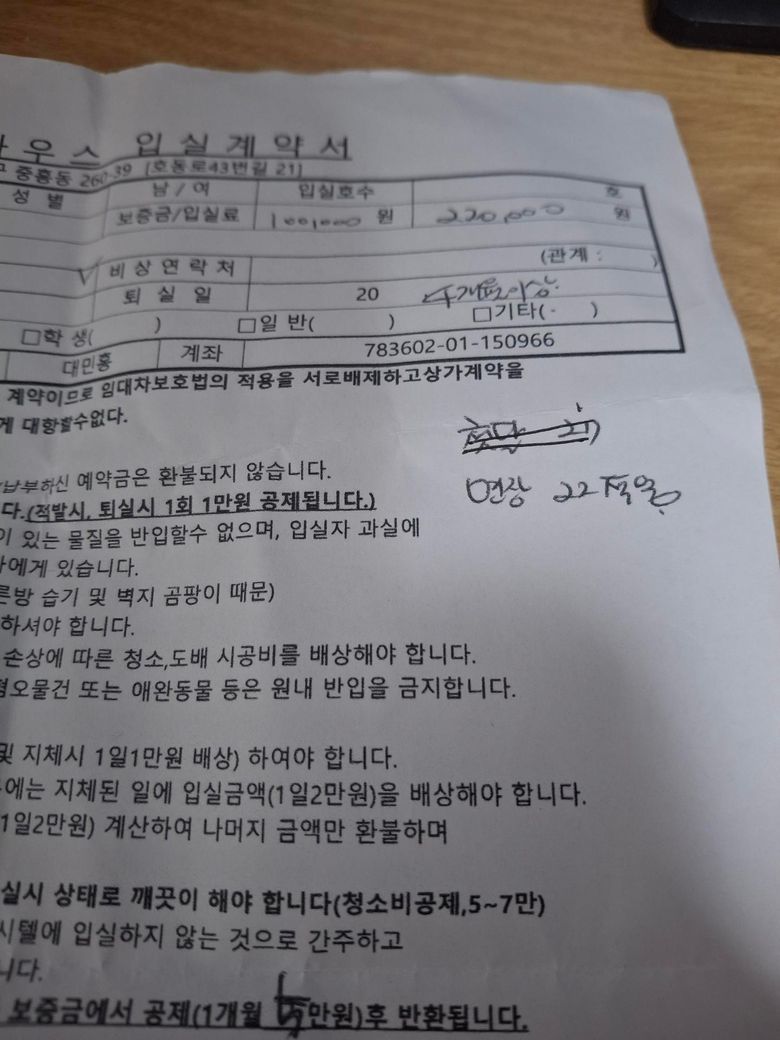 우스 입실계약서
중흥동 260-39 (호동로43번길 21)
성별 남/여 입실호수 호
보증금/입실료 100,000 원 220,000 원
비상연락처 (관계 : )
퇴실일 20 개월이상
□학생( ) □일반( ) □기타( )
대민홍 계좌 783602-01-150966
계약이므로 임대차보호법의 적용을 서로배제하고상가계약을
게 대항할수없다.
연장 22 적용
납부하신 예약금은 환불되지 않습니다.
다.(적발시, 퇴실시 1회 1만원 공제됩니다.)
이 있는 물질을 반입할수 없으며, 입실자 과실에
에게 있습니다.
른방 습기 및 벽지 곰팡이 때문)
하셔야 합니다.
손상에 따른 청소,도배 시공비를 배상해야 합니다.
혐오물건 또는 애완동물 등은 원내 반입을 금지합니다.
및 지체시 1일1만원 배상) 하여야 합니다.
에는 지체된 일에 입실금액(1일2만원)을 배상해야 합니다.
1일2만원) 계산하여 나머지 금액만 환불하며
실시 상태로 깨끗이 해야 합니다(청소비공제,5~7만)
시텔에 입실하지 않는 것으로 간주하고
니다.
보증금에서 공제(1개월 만원)후 반환됩니다.